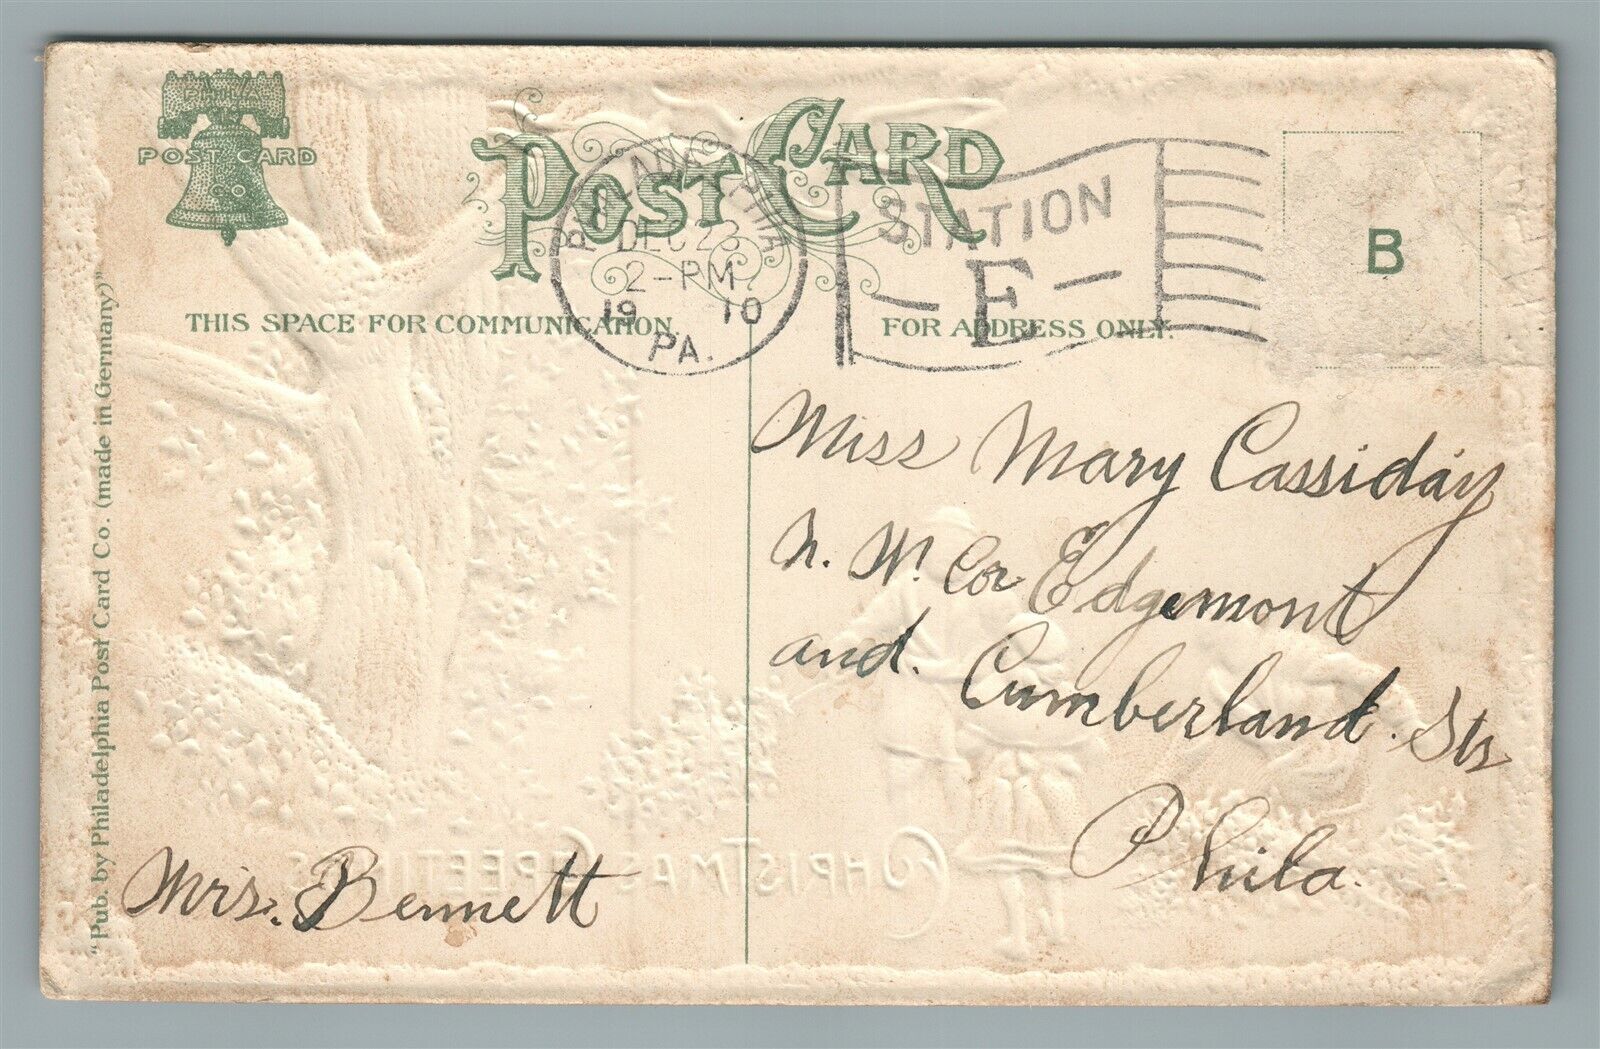 PHILA
POST CARD
CO
POST CARD
PHILADELPHIA
DEC 23
2-PM
19 10
PA.
STATION
- E -
B
THIS SPACE FOR COMMUNICATION.
FOR ADDRESS ONLY.
"Pub. by Philadelphia Post Card Co. (made in Germany)"
Miss Mary Cassiday
N. W. Cor Edgemont
and. Cumberland. Sts
Phila.
Mrs. Bennett
CHRISTMAS GREETINGS